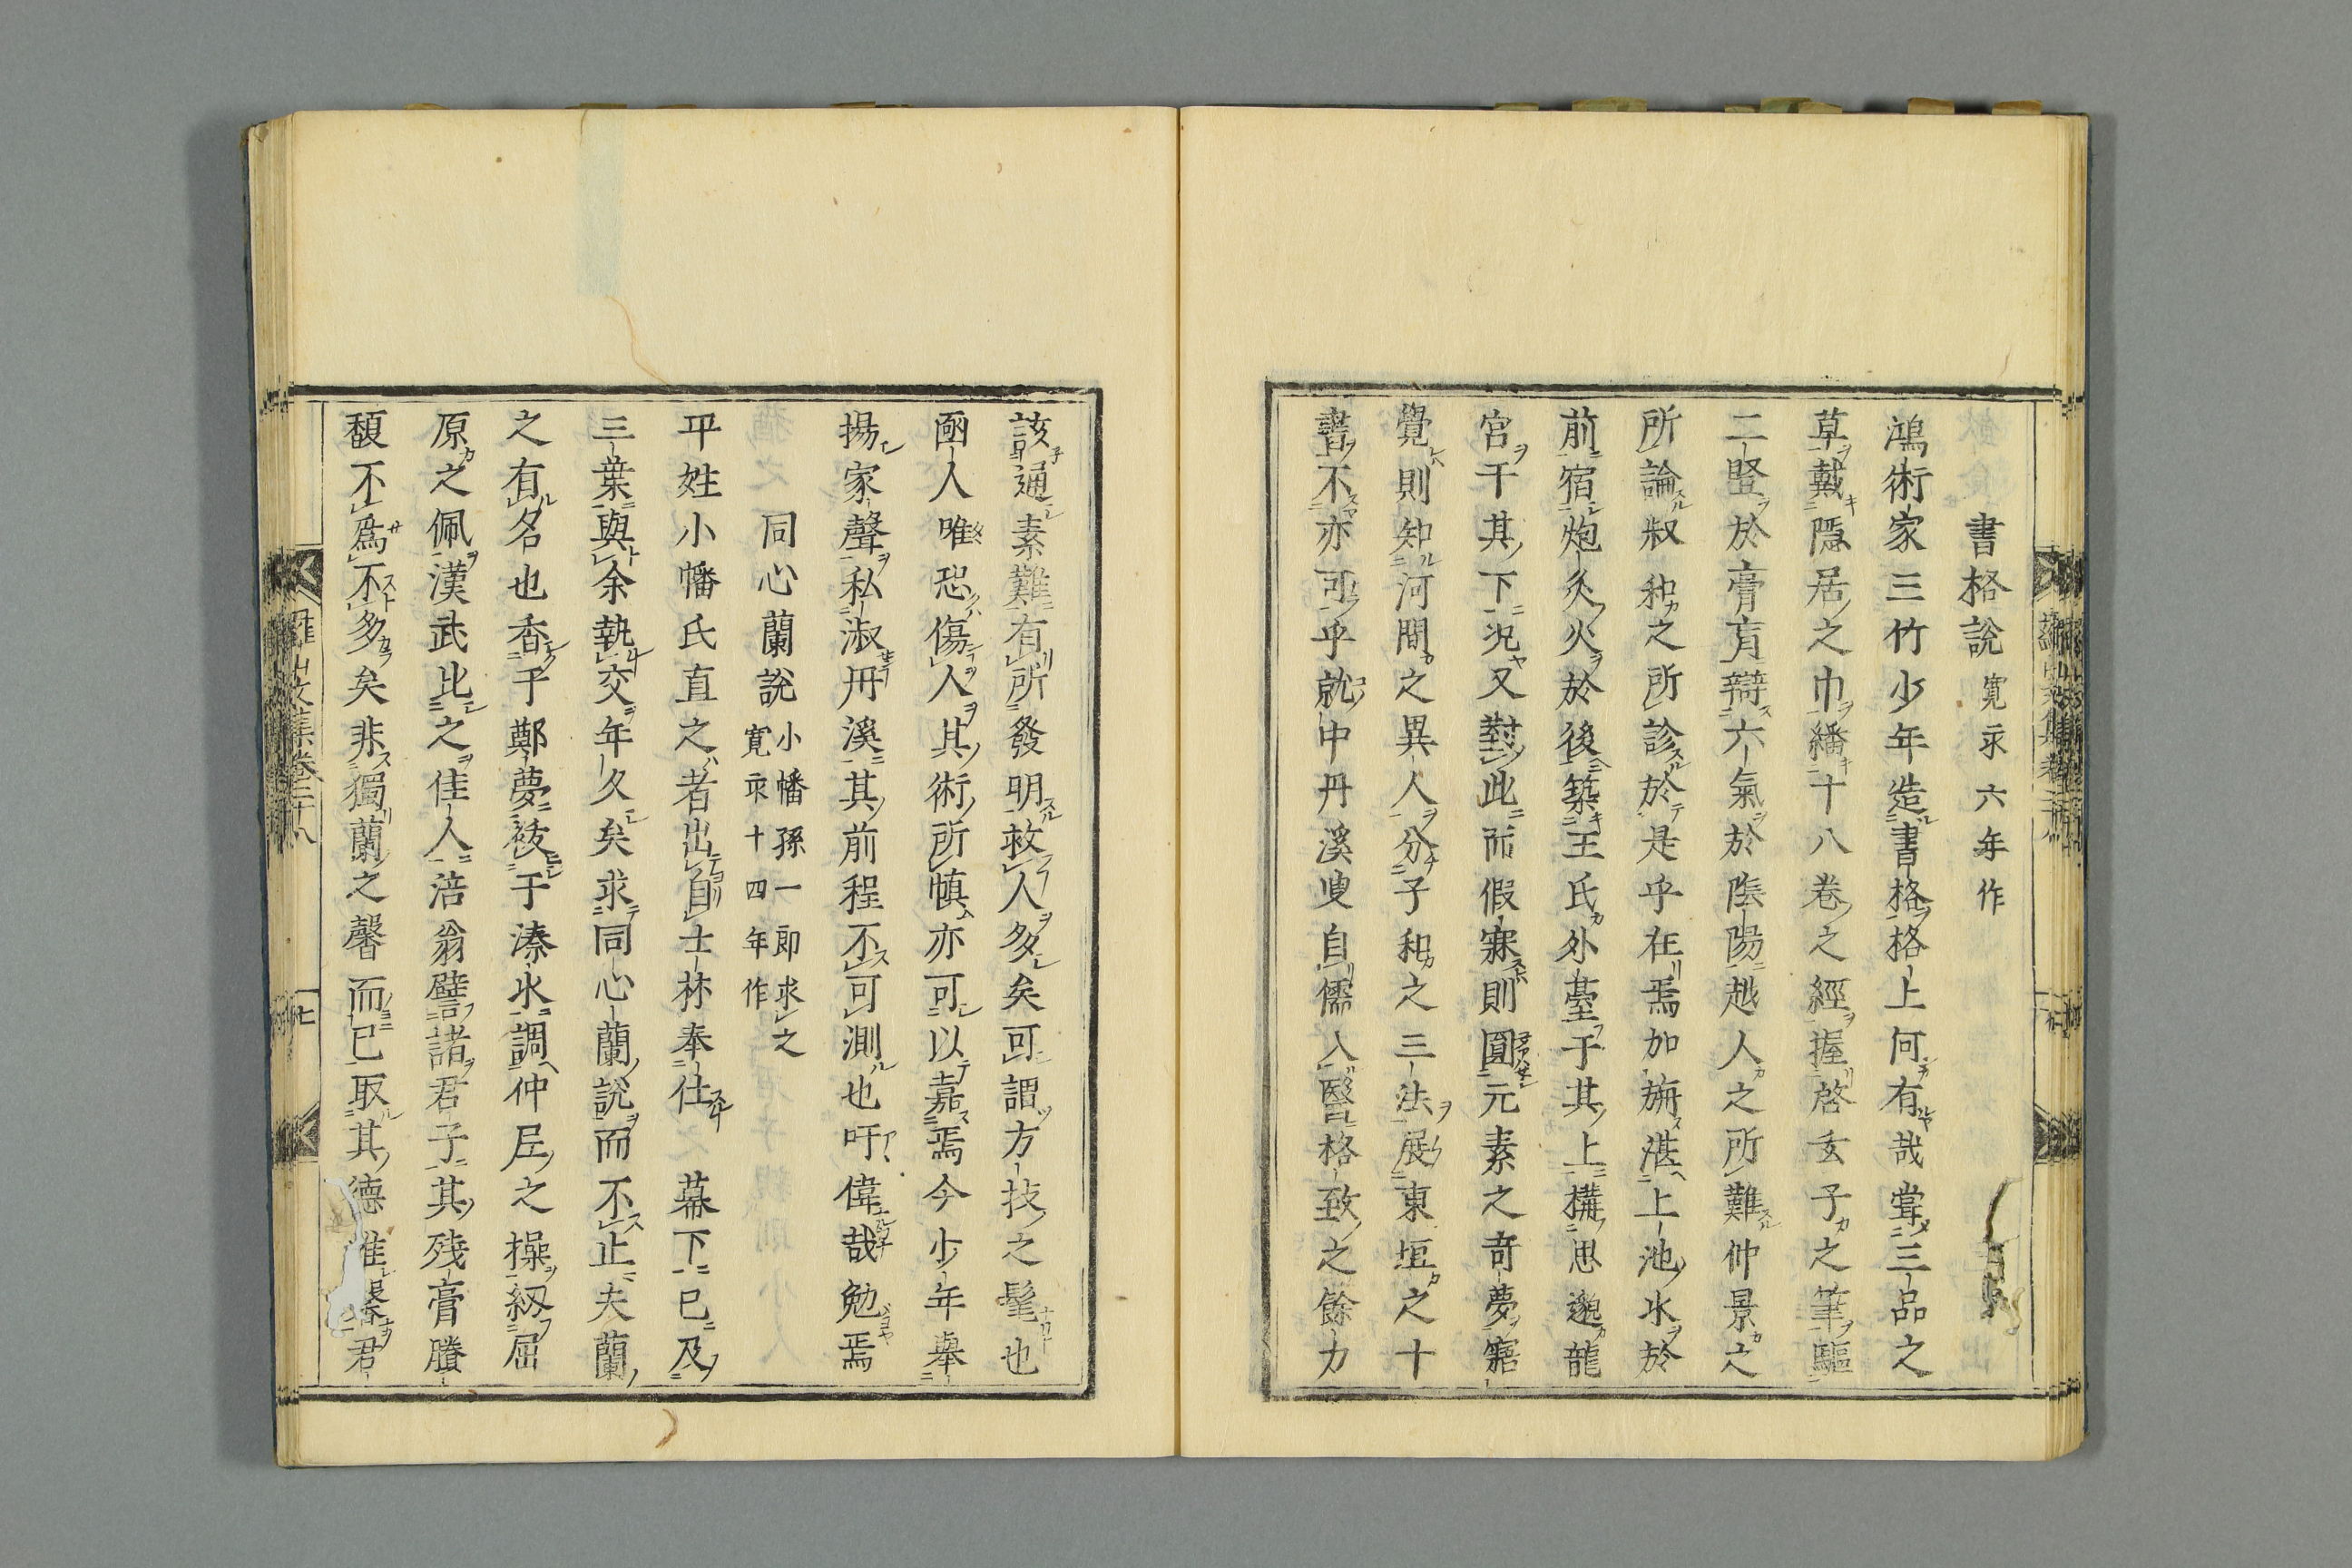 書格說 寛永六年作
鴻術家三竹少年造書格格上何有哉甞三品之
草戴隠居之巾繙十八卷之經握啓玄子之筆驅
二竪於膏肓辯六氣於陰陽越人之所難仲景之
所論叔和之所診於是乎在焉加旃湛上池水於
前宿炮灸火於後築王氏外臺于其上構思邈龍
宮于其下況又對此而假寐則圓元素之奇夢寤
覺則知河間之異人分子和之三法展東垣之十
書不亦可乎就中丹溪叟自儒入醫格致之餘力
該通素難有所發明救人多矣可謂方技之髦也
凾人唯恐傷人其術所慎亦可以嘉焉今少年舉
揚家聲私淑丹溪其前程不可測也吁偉哉勉焉
同心蘭說 小幡孫一即求之
寛永十四年作
平姓小幡氏直之者出自士林奉仕 幕下已及
三葉與余執交年久矣求同心蘭說而不止夫蘭
之有名也香于鄭夢袚于溱水調仲尼之操紉屈
原之佩漢武比之佳人涪翁譬諸君子其殘膏賸
馥不爲不多矣非獨蘭之馨而已取其德惟馨君
羅山文集卷二十八
七